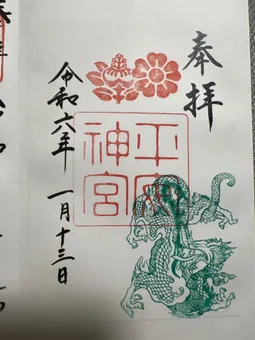 奉拝
平安神宮
令和六年
一月十三日